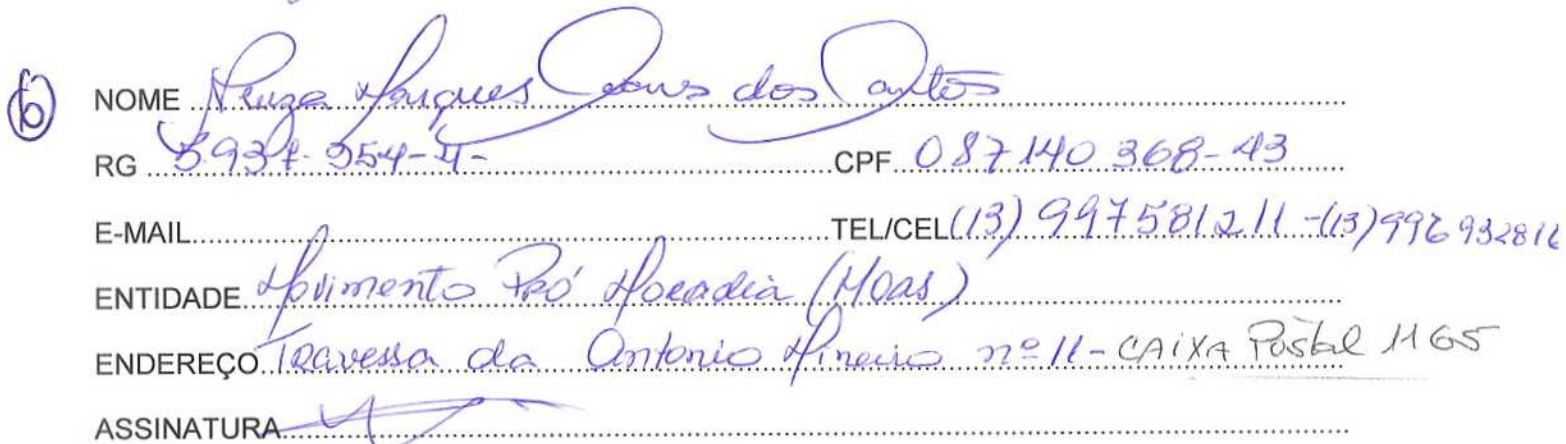 6 NOME Neuza Marques dos Santos
RG 5937.954-4- CPF 087140 368-43
E-MAIL TEL/CEL (13) 997581211 - (13) 996932816
ENTIDADE Movimento Pró Moradia (Moas)
ENDEREÇO Travessa da Antonio Mineiro nº 11 - CAIXA Postal 1165
ASSINATURA